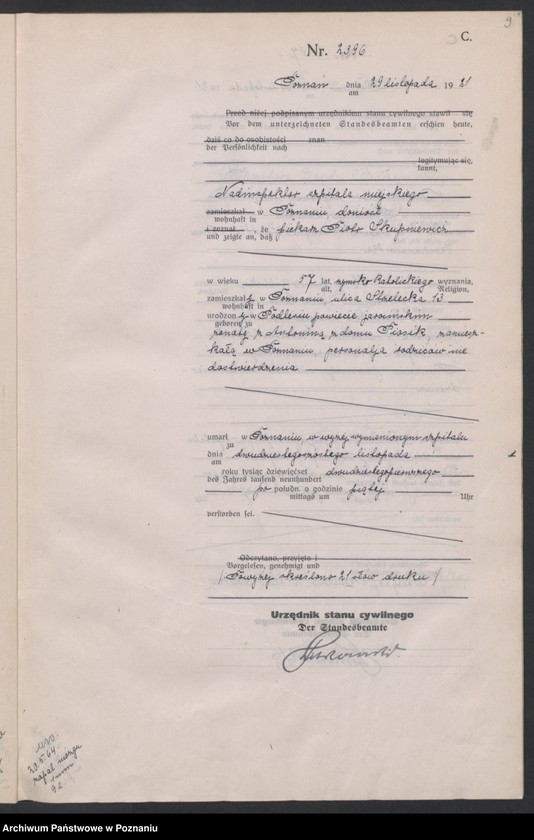 9
C.
Nr. 2396
Poznań dnia 29 listopada 1921
am
Przed niżej podpisanym urzędnikiem stanu cywilnego stawił się
Vor dem unterzeichneten Standesbeamten erschien heute,
dziś co do osobistości znan
der Persönlichkeit nach
legitymując się,
kannt,
Nadinspektor szpitala miejskiego
zamieszkał w Poznaniu doniósł
wohnhaft in
i zeznał, że piekarz Piotr Skupniewicz
und zeigte an, daß
w wieku 57 lat, rzymsko katolickiego wyznania,
alt, Religion,
zamieszkały w Poznaniu ulica Strzelecka 13
wohnhaft in
urodzony w Podlesiu powiecie jarocińskim
geboren zu
żonaty z Antoniną z domu Pissik, zamiesz-
kałą w Poznaniu, personalja rodziców nie
dostwierdzenia
umarł w Poznaniu w wyżej wymienionym szpitalu
zu
dnia dwudziestegoszóstego listopada
am
roku tysiąc dziewięćset dwudziestegopierwszego
des Jahres tausend neunhundert
po połudn. o godzinie piątej
mittags um Uhr
verstorben sei.
Odczytano, przyjęto i
Vorgelesen, genehmigt und
/ Powyżej skreślono 21 słów druku /
Urzędnik stanu cywilnego
Der Standesbeamte
23.5.64
92.
Archiwum Państwowe w Poznaniu